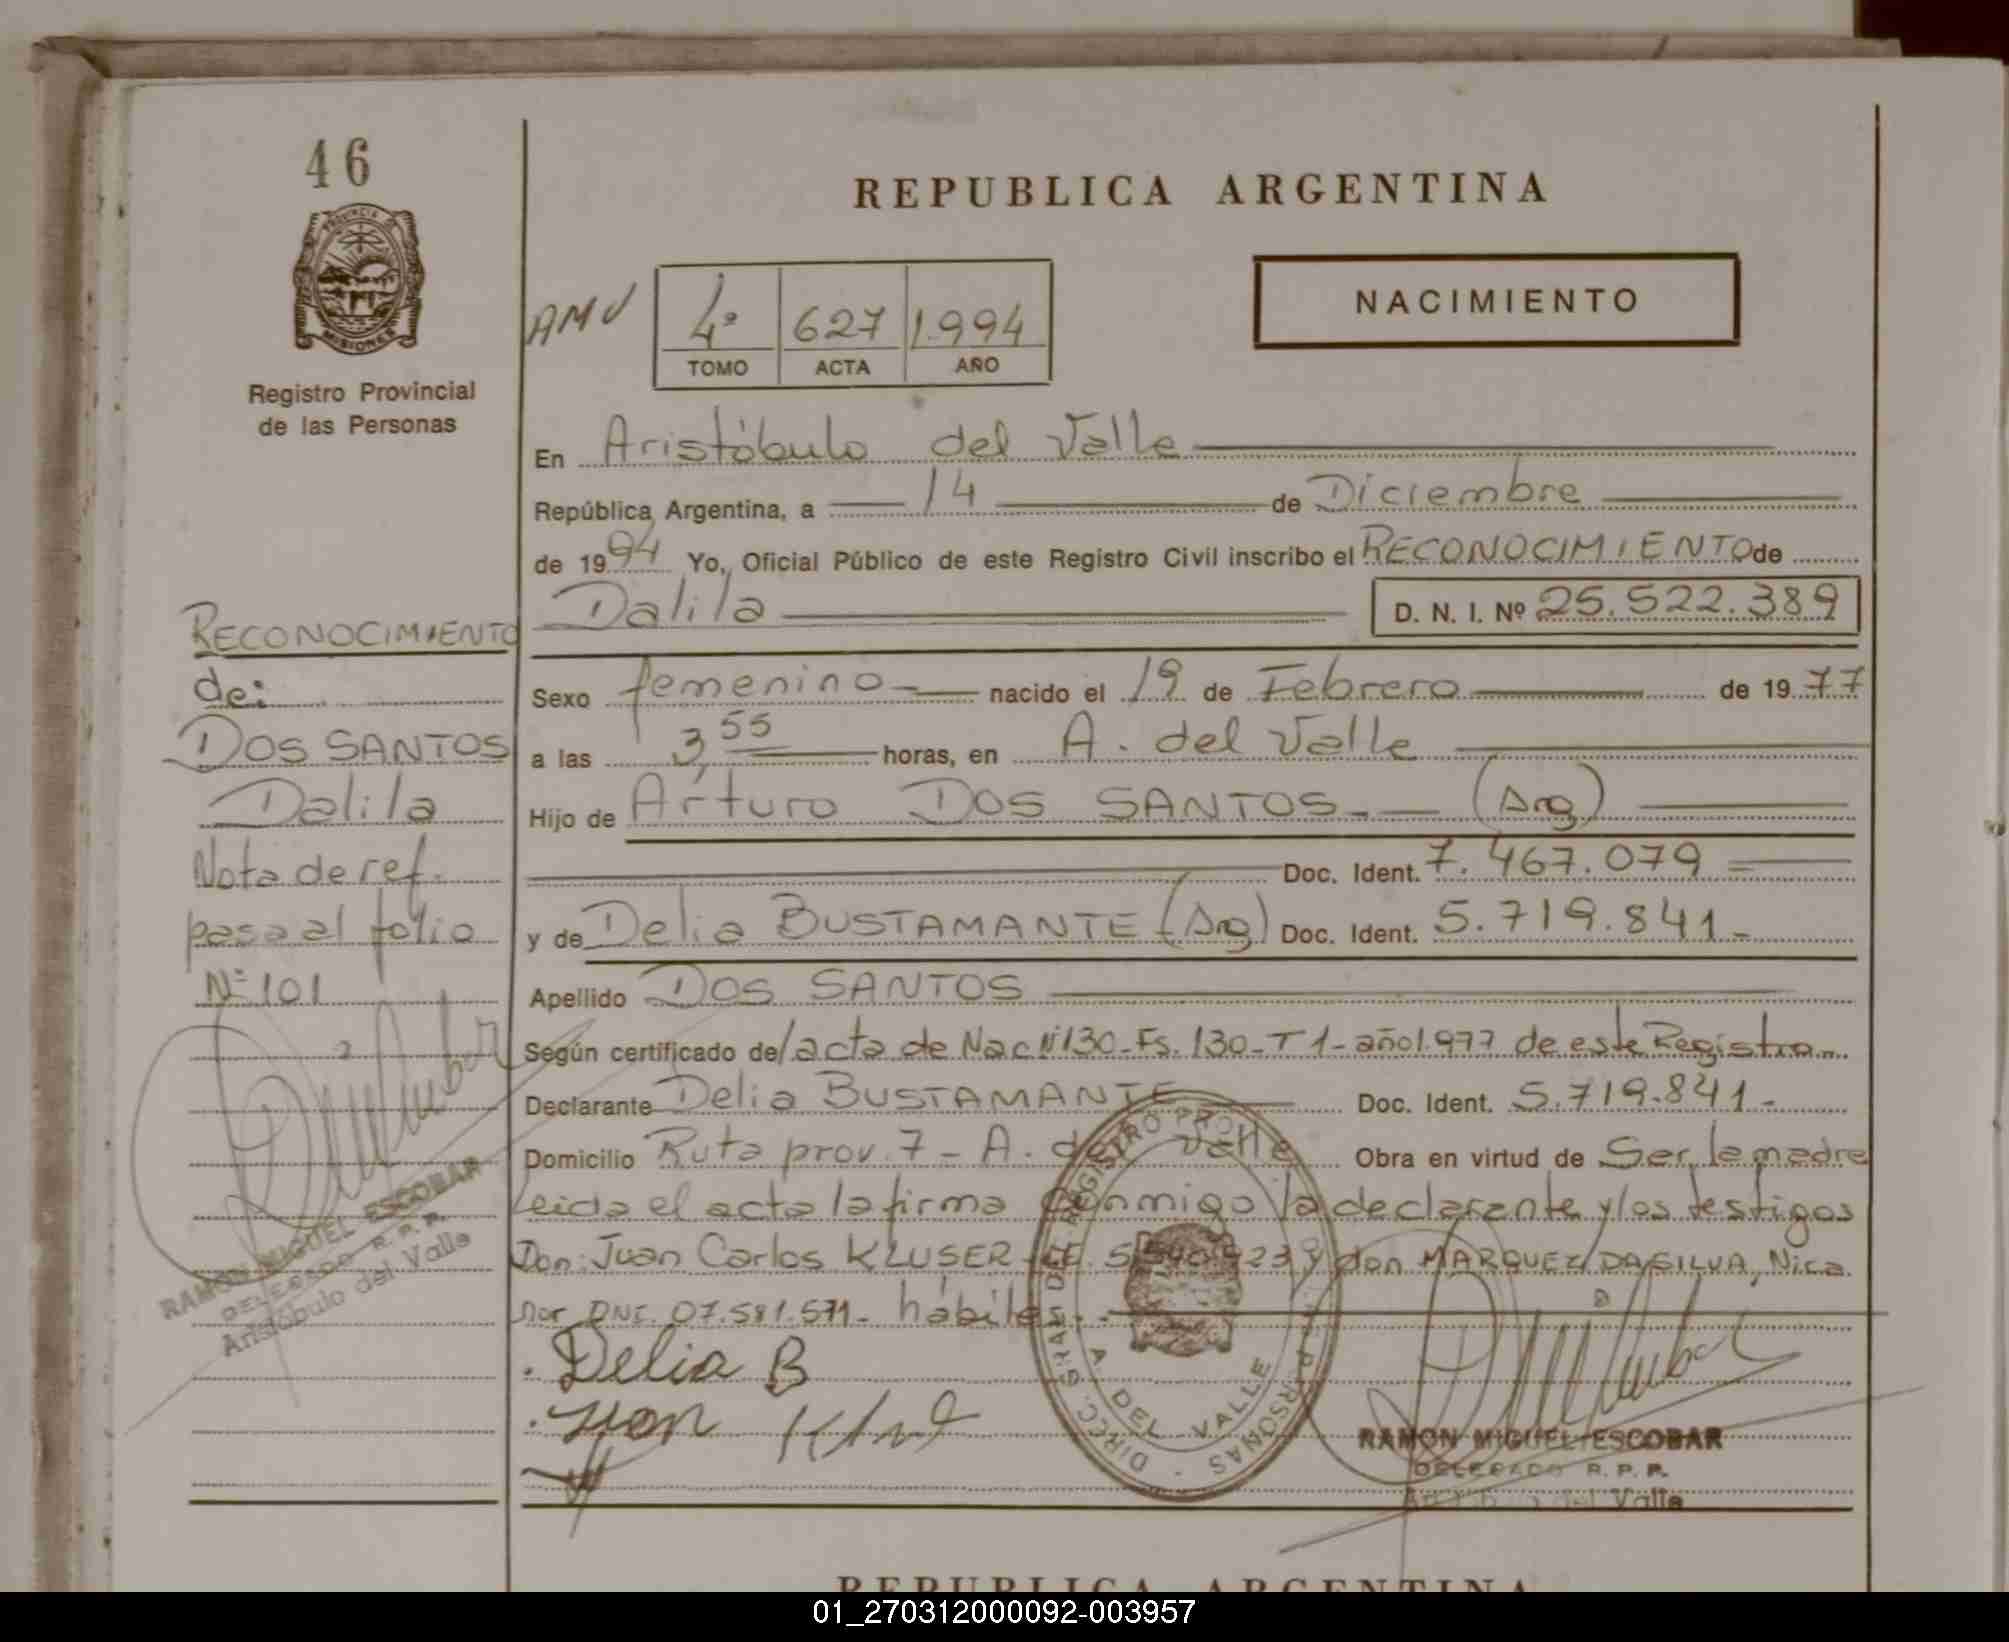 46
PROVINCIA DE
MISIONES
Registro Provincial
de las Personas
REPUBLICA ARGENTINA
AMV
4º 627 1.994
TOMO ACTA AÑO
NACIMIENTO
En Aristóbulo del Valle
República Argentina, a 14 de Diciembre
de 1994 Yo, Oficial Público de este Registro Civil inscribo el RECONOCIMIENTO de
Dalila D. N. I. Nº 25.522.389
Sexo femenino nacido el 19 de Febrero de 1977
a las 3,55 horas, en A. del Valle
Hijo de Arturo DOS SANTOS (Arg)
Doc. Ident. 7.467.079
y de Delia BUSTAMANTE (Arg) Doc. Ident. 5.719.841
Apellido DOS SANTOS
Según certificado del acta de Nac Nº130-Fs. 130-T 1-año1.977 de este Registro
Declarante Delia BUSTAMANTE Doc. Ident. 5.719.841
Domicilio Ruta prov. 7 - A. del Valle Obra en virtud de Ser la madre
Leida el acta la firma conmigo la declarante y los testigos
Don: Juan Carlos KLUSER y don MARQUEZ DASILVA, Nica
nor DNI. 07.581.571- hábiles
Delia B
RAMON MIGUEL ESCOBAR
DELEGADO R. P. P.
Aristóbulo del Valle
A DEL VALLE
RECONOCIMIENTO
de:
DOS SANTOS
Dalila
Nota de ref.
pasa al folio
Nº 101
RAMON MIGUEL ESCOBAR
DELEGADO R. P. P.
Aristóbulo del Valle
REPUBLICA ARGENTINA
01_270312000092-003957